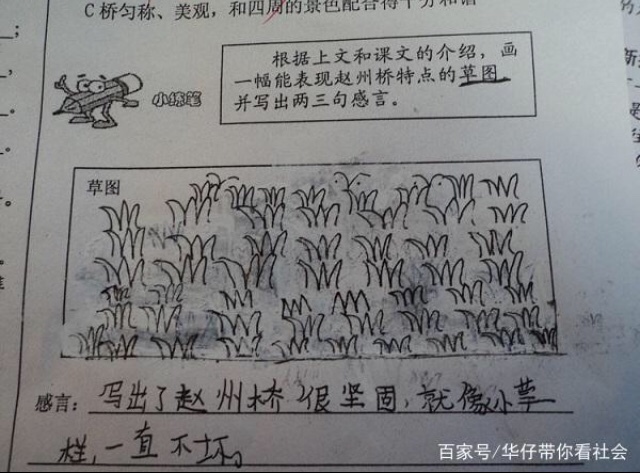 C 桥匀称、美观，和四周的景色配合得十分和谐
根据上文和课文的介绍，画
一幅能表现赵州桥特点的草图，
并写出两三句感言。
小练笔
草图
感言：写出了赵州桥很坚固，就像小草一
样，一直不坏。
百家号/华仔带你看社会